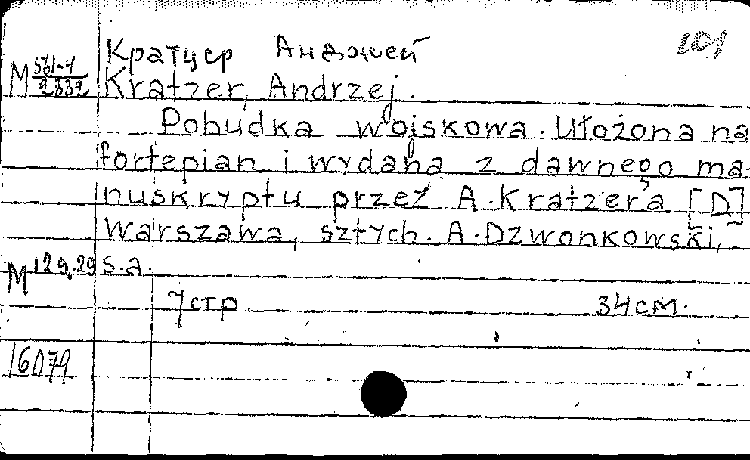 Кратцер Анджей
101
M 561-1/2832
Kratzer, Andrzej.
Pobudka wojskowa. Ułożona na
fortepian i wydana z dawnego ma-
nuskryptu przez A. Kratzera [D]
Warszawa, sztych. A. Dzwonkowski,
M 129.29
s.a.
7 стр
34 см.
16079